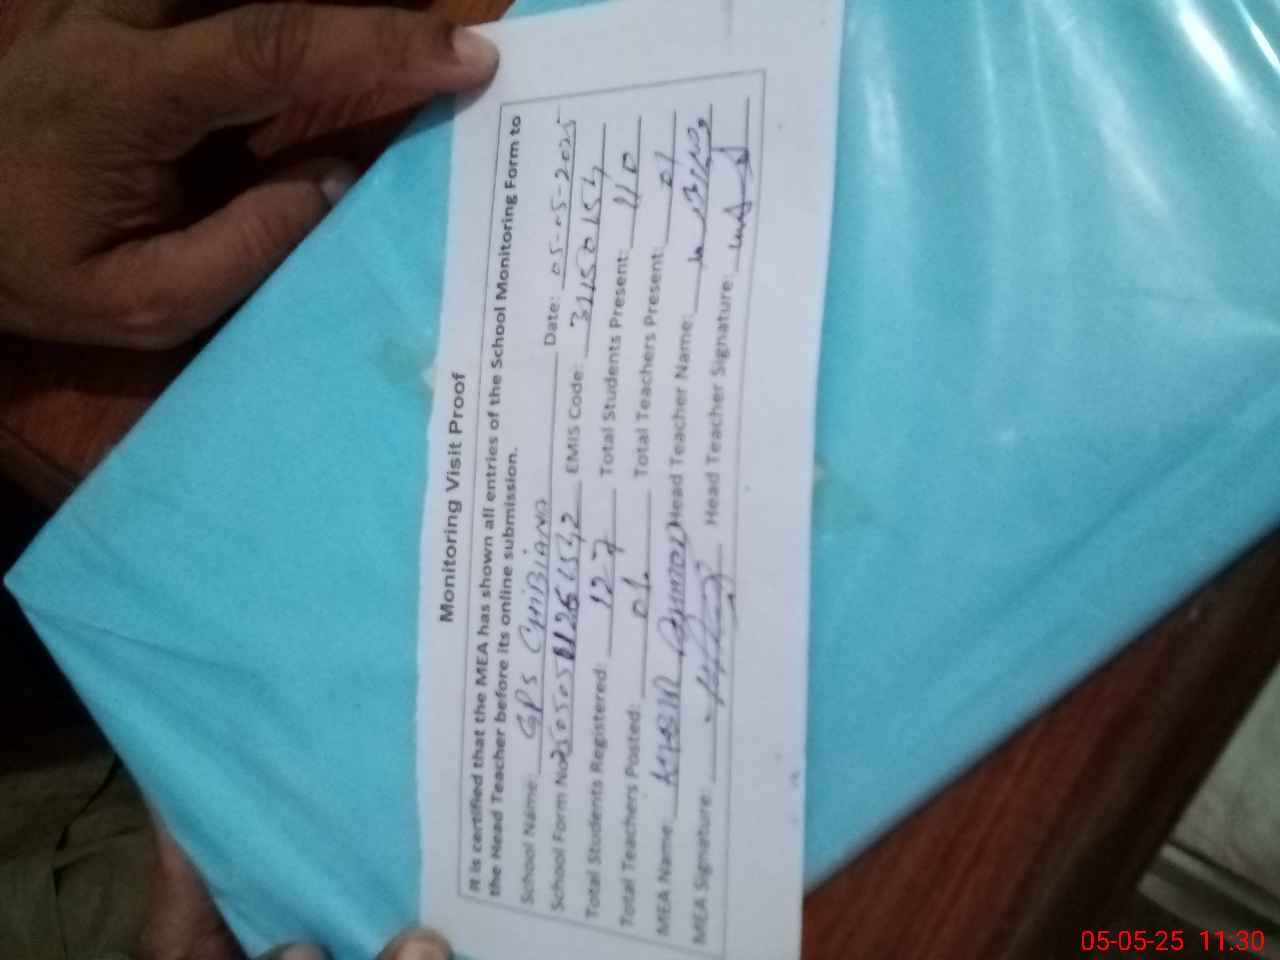 Monitoring Visit Proof
It is certified that the MEA has shown all entries of the School Monitoring Form to
the Head Teacher before its online submission.
School Name: GPS CHIBIANO Date: 05-05-2025
School Form No. EMIS Code:
Total Students Registered: 127 Total Students Present: 110
Total Teachers Posted: Total Teachers Present:
MEA Name: Head Teacher Name:
MEA Signature: Head Teacher Signature:
05-05-25 11:30